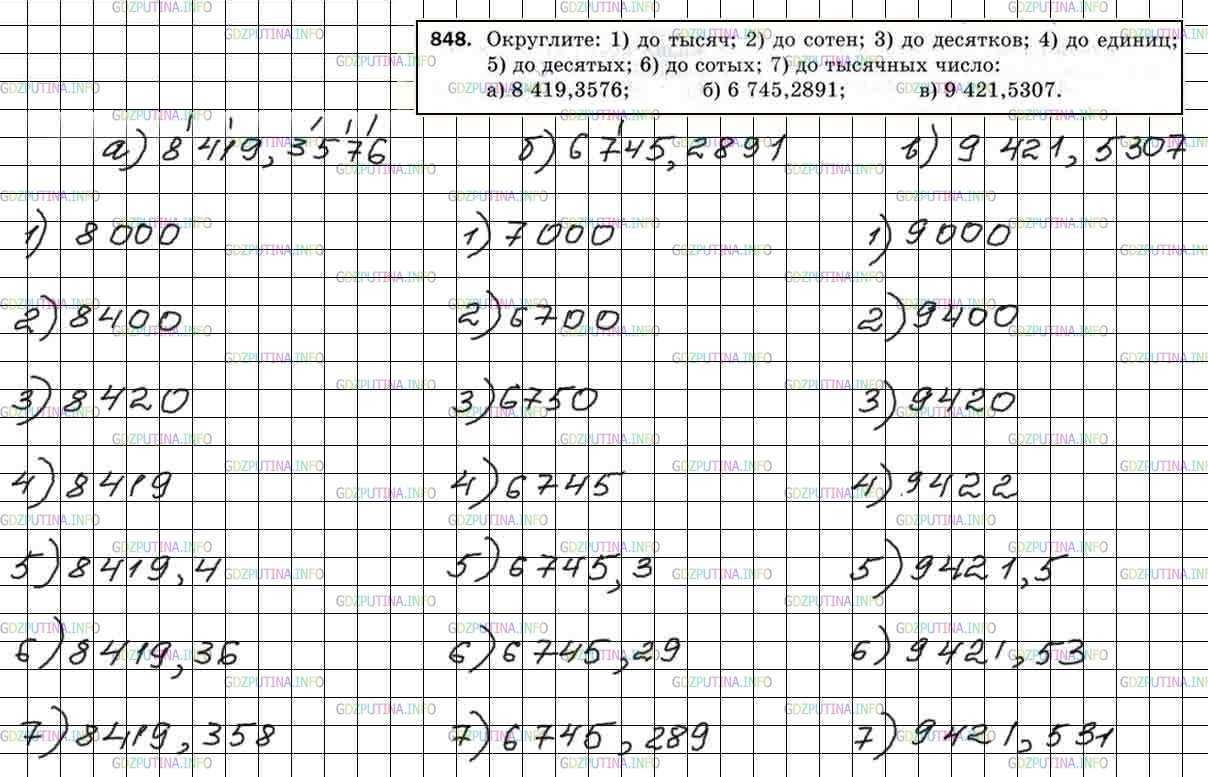 848. Округлите: 1) до тысяч; 2) до сотен; 3) до десятков; 4) до единиц;
5) до десятых; 6) до сотых; 7) до тысячных число:
а) 8 419,3576; б) 6 745,2891; в) 9 421,5307.
а) 8 419,3576 б) 6 745,2891 в) 9 421,5307
1) 8000 1) 7000 1) 9000
2) 8400 2) 6700 2) 9400
3) 8420 3) 6750 3) 9420
4) 8419 4) 6745 4) 9422
5) 8419,4 5) 6745,3 5) 9421,5
6) 8419,36 6) 6745,29 6) 9421,53
7) 8419,358 7) 6745,289 7) 9421,531
GDZPUTINA.INFO